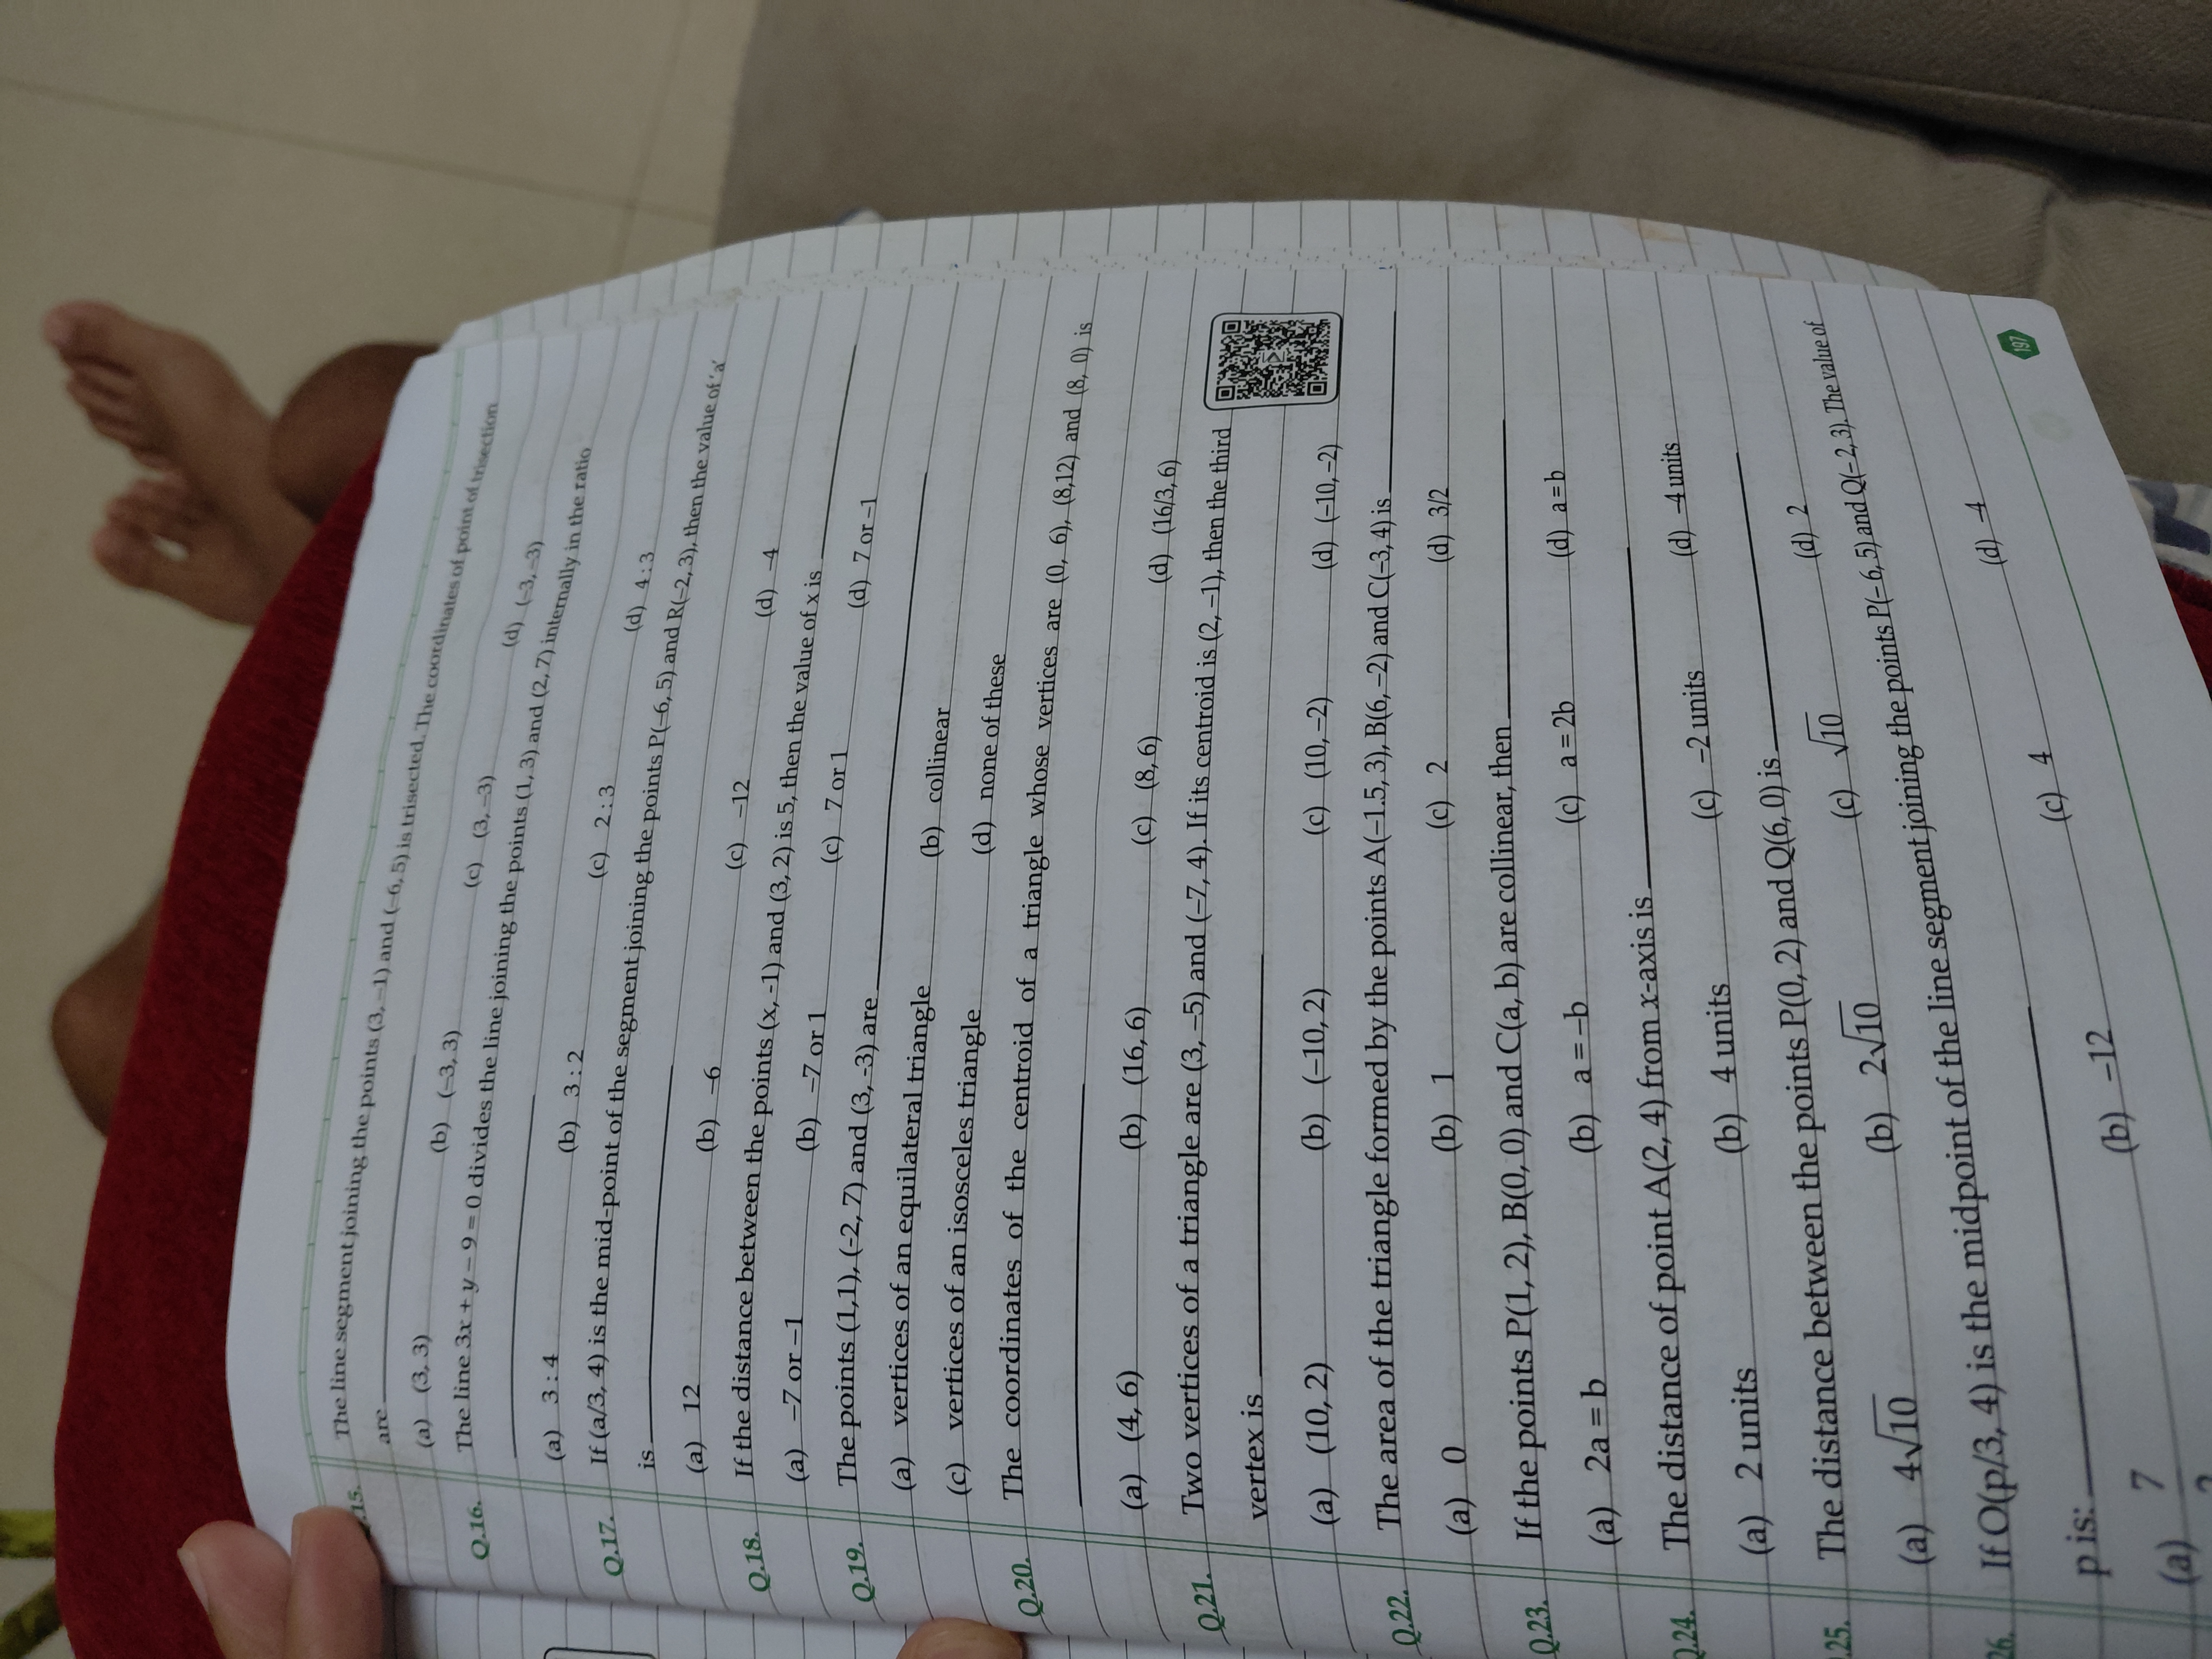 15. The line segment joining the points (3, –1) and (–6, 5) is trisected. The coordinates of point of trisection
are
(a) (3, 3) (b) (–3, 3) (c) (3, –3) (d) (–3, –3)
Q.16. The line 3x + y – 9 = 0 divides the line joining the points (1, 3) and (2, 7) internally in the ratio
(a) 3 : 4 (b) 3 : 2 (c) 2 : 3 (d) 4 : 3
Q.17. If (a/3, 4) is the mid-point of the segment joining the points P(–6, 5) and R(–2, 3), then the value of 'a'
is
(a) 12 (b) –6 (c) –12 (d) –4
Q.18. If the distance between the points (x, –1) and (3, 2) is 5, then the value of x is
(a) –7 or –1 (b) –7 or 1 (c) 7 or 1 (d) 7 or –1
Q.19. The points (1,1), (–2, 7) and (3, –3) are
(a) vertices of an equilateral triangle (b) collinear
(c) vertices of an isosceles triangle (d) none of these
Q.20. The coordinates of the centroid of a triangle whose vertices are (0, 6), (8,12) and (8, 0) is
(a) (4, 6) (b) (16, 6) (c) (8, 6) (d) (16/3, 6)
Q.21. Two vertices of a triangle are (3, –5) and (–7, 4). If its centroid is (2, –1), then the third
vertex is
(a) (10, 2) (b) (–10, 2) (c) (10, –2) (d) (–10, –2)
Q.22. The area of the triangle formed by the points A(–1.5, 3), B(6, –2) and C(–3, 4) is
(a) 0 (b) 1 (c) 2 (d) 3/2
Q.23. If the points P(1, 2), B(0, 0) and C(a, b) are collinear, then
(a) 2a = b (b) a = –b (c) a = 2b (d) a = b
Q.24. The distance of point A(2, 4) from x-axis is
(a) 2 units (b) 4 units (c) –2 units (d) –4 units
25. The distance between the points P(0, 2) and Q(6, 0) is
(a) 4√10 (b) 2√10 (c) √10 (d) 2
26. If O(p/3, 4) is the midpoint of the line segment joining the points P(–6, 5) and Q(–2, 3). The value of
p is:
(a) 7 (b) –12 (c) 4 (d) –4
197